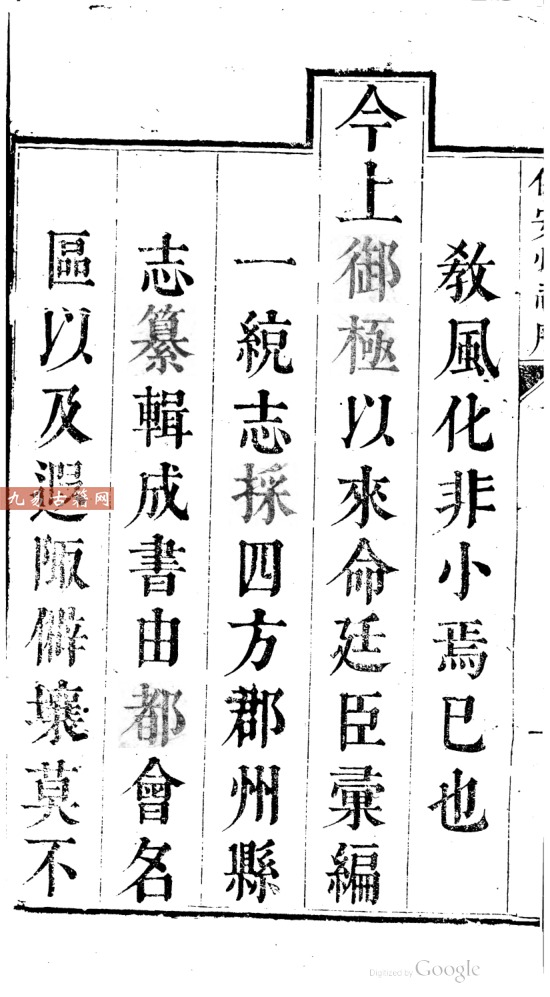 保安州志序
教風化非小焉已也
今上御極以來命廷臣彚編
一統志採四方郡州縣
志纂輯成書由都會名
區以及遐陬僻壤莫不
九易古籍网
Digitized by Google